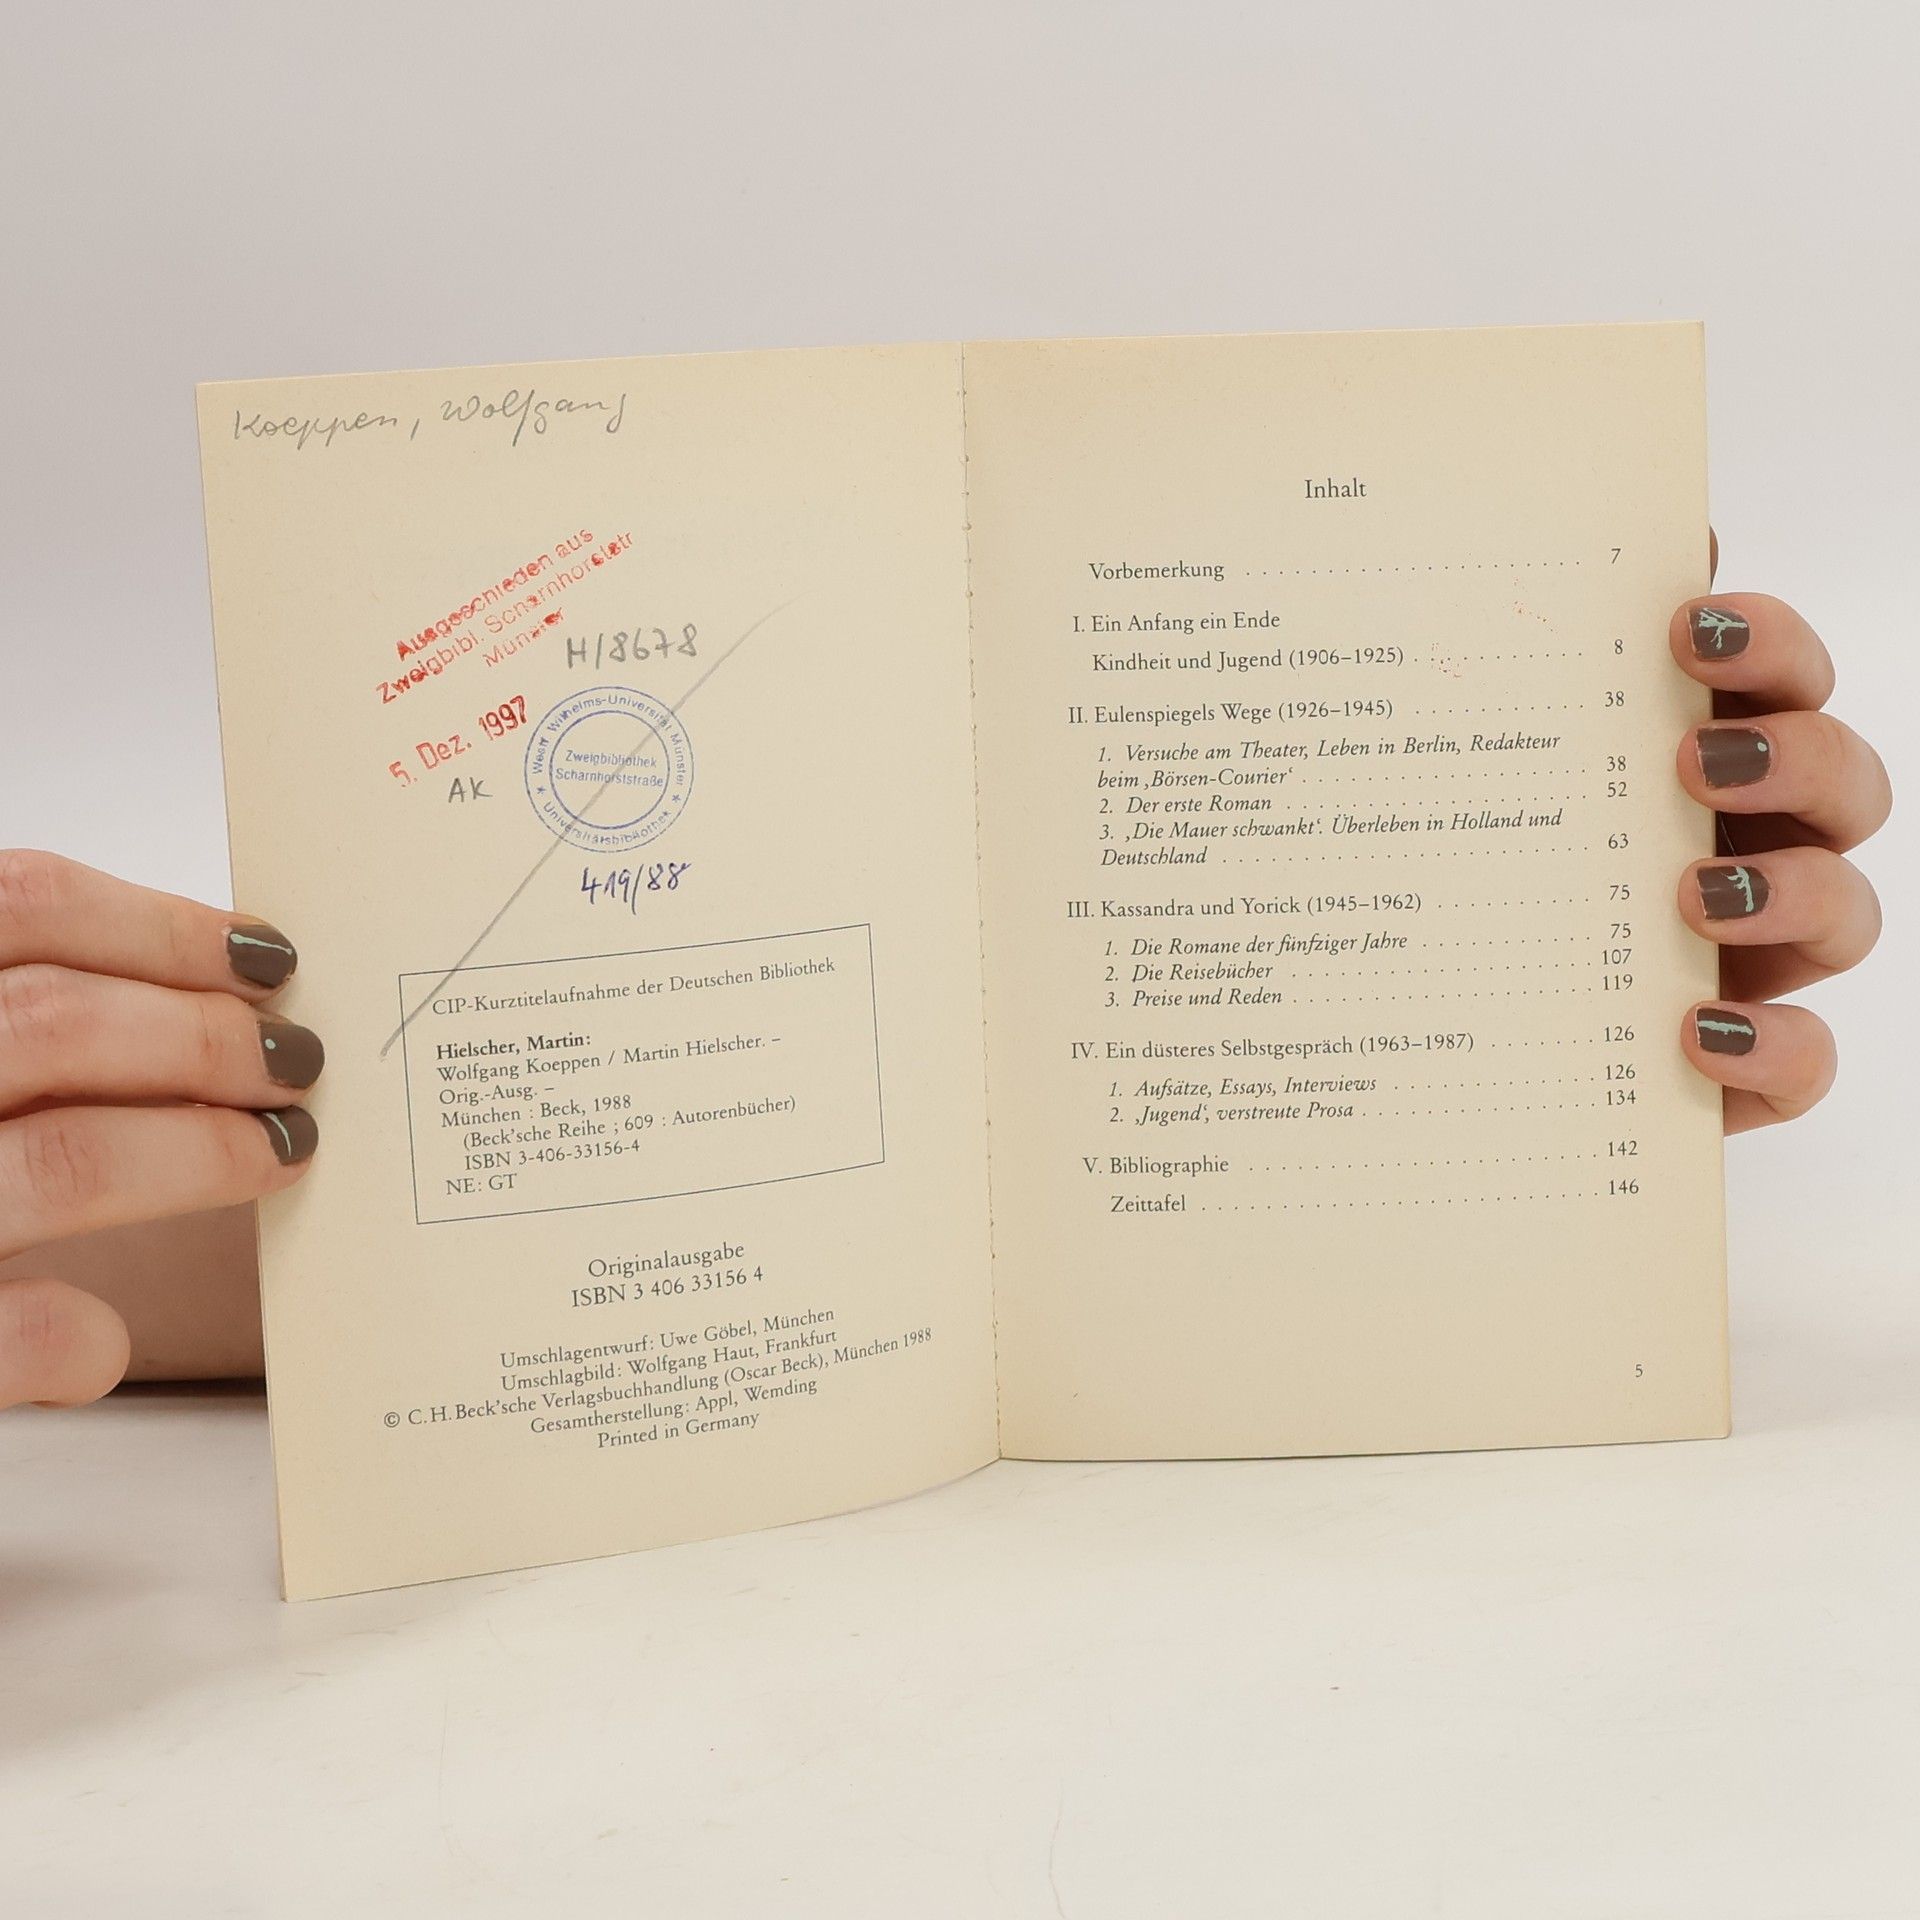 Koeppen, Wolfgang
Ausgeschieden aus
Zweigbibl. Scharnhorststr
Münster
H/8678
5. Dez. 1997
AK
Westf. Wilhelms-Universität Münster
Zweigbibliothek
Scharnhorststraße
★ Universitätsbibliothek ★
419/88
CIP-Kurztitelaufnahme der Deutschen Bibliothek
Hielscher, Martin:
Wolfgang Koeppen / Martin Hielscher. –
Orig.-Ausg. –
München : Beck, 1988
(Beck'sche Reihe ; 609 : Autorenbücher)
ISBN 3-406-33156-4
NE: GT
Originalausgabe
ISBN 3 406 33156 4
Umschlagentwurf: Uwe Göbel, München
Umschlagbild: Wolfgang Haut, Frankfurt
© C. H. Beck'sche Verlagsbuchhandlung (Oscar Beck), München 1988
Gesamtherstellung: Appl, Wemding
Printed in Germany
Inhalt
Vorbemerkung . . . . . . . . . . . . . . . . . . . . . 7
I. Ein Anfang ein Ende
Kindheit und Jugend (1906–1925) . . . . . . . . . . . 8
II. Eulenspiegels Wege (1926–1945) . . . . . . . . . . . 38
1. Versuche am Theater, Leben in Berlin, Redakteur
beim ‚Börsen-Courier‘ . . . . . . . . . . . . . . . . . 38
2. Der erste Roman . . . . . . . . . . . . . . . . . . . 52
3. ‚Die Mauer schwankt‘. Überleben in Holland und
Deutschland . . . . . . . . . . . . . . . . . . . . . . 63
III. Kassandra und Yorick (1945–1962) . . . . . . . . . . 75
1. Die Romane der fünfziger Jahre . . . . . . . . . . . 75
2. Die Reisebücher . . . . . . . . . . . . . . . . . . . 107
3. Preise und Reden . . . . . . . . . . . . . . . . . . 119
IV. Ein düsteres Selbstgespräch (1963–1987) . . . . . . . 126
1. Aufsätze, Essays, Interviews . . . . . . . . . . . . . 126
2. ‚Jugend‘, verstreute Prosa . . . . . . . . . . . . . . 134
V. Bibliographie . . . . . . . . . . . . . . . . . . . . . 142
Zeittafel . . . . . . . . . . . . . . . . . . . . . . . . 146
5